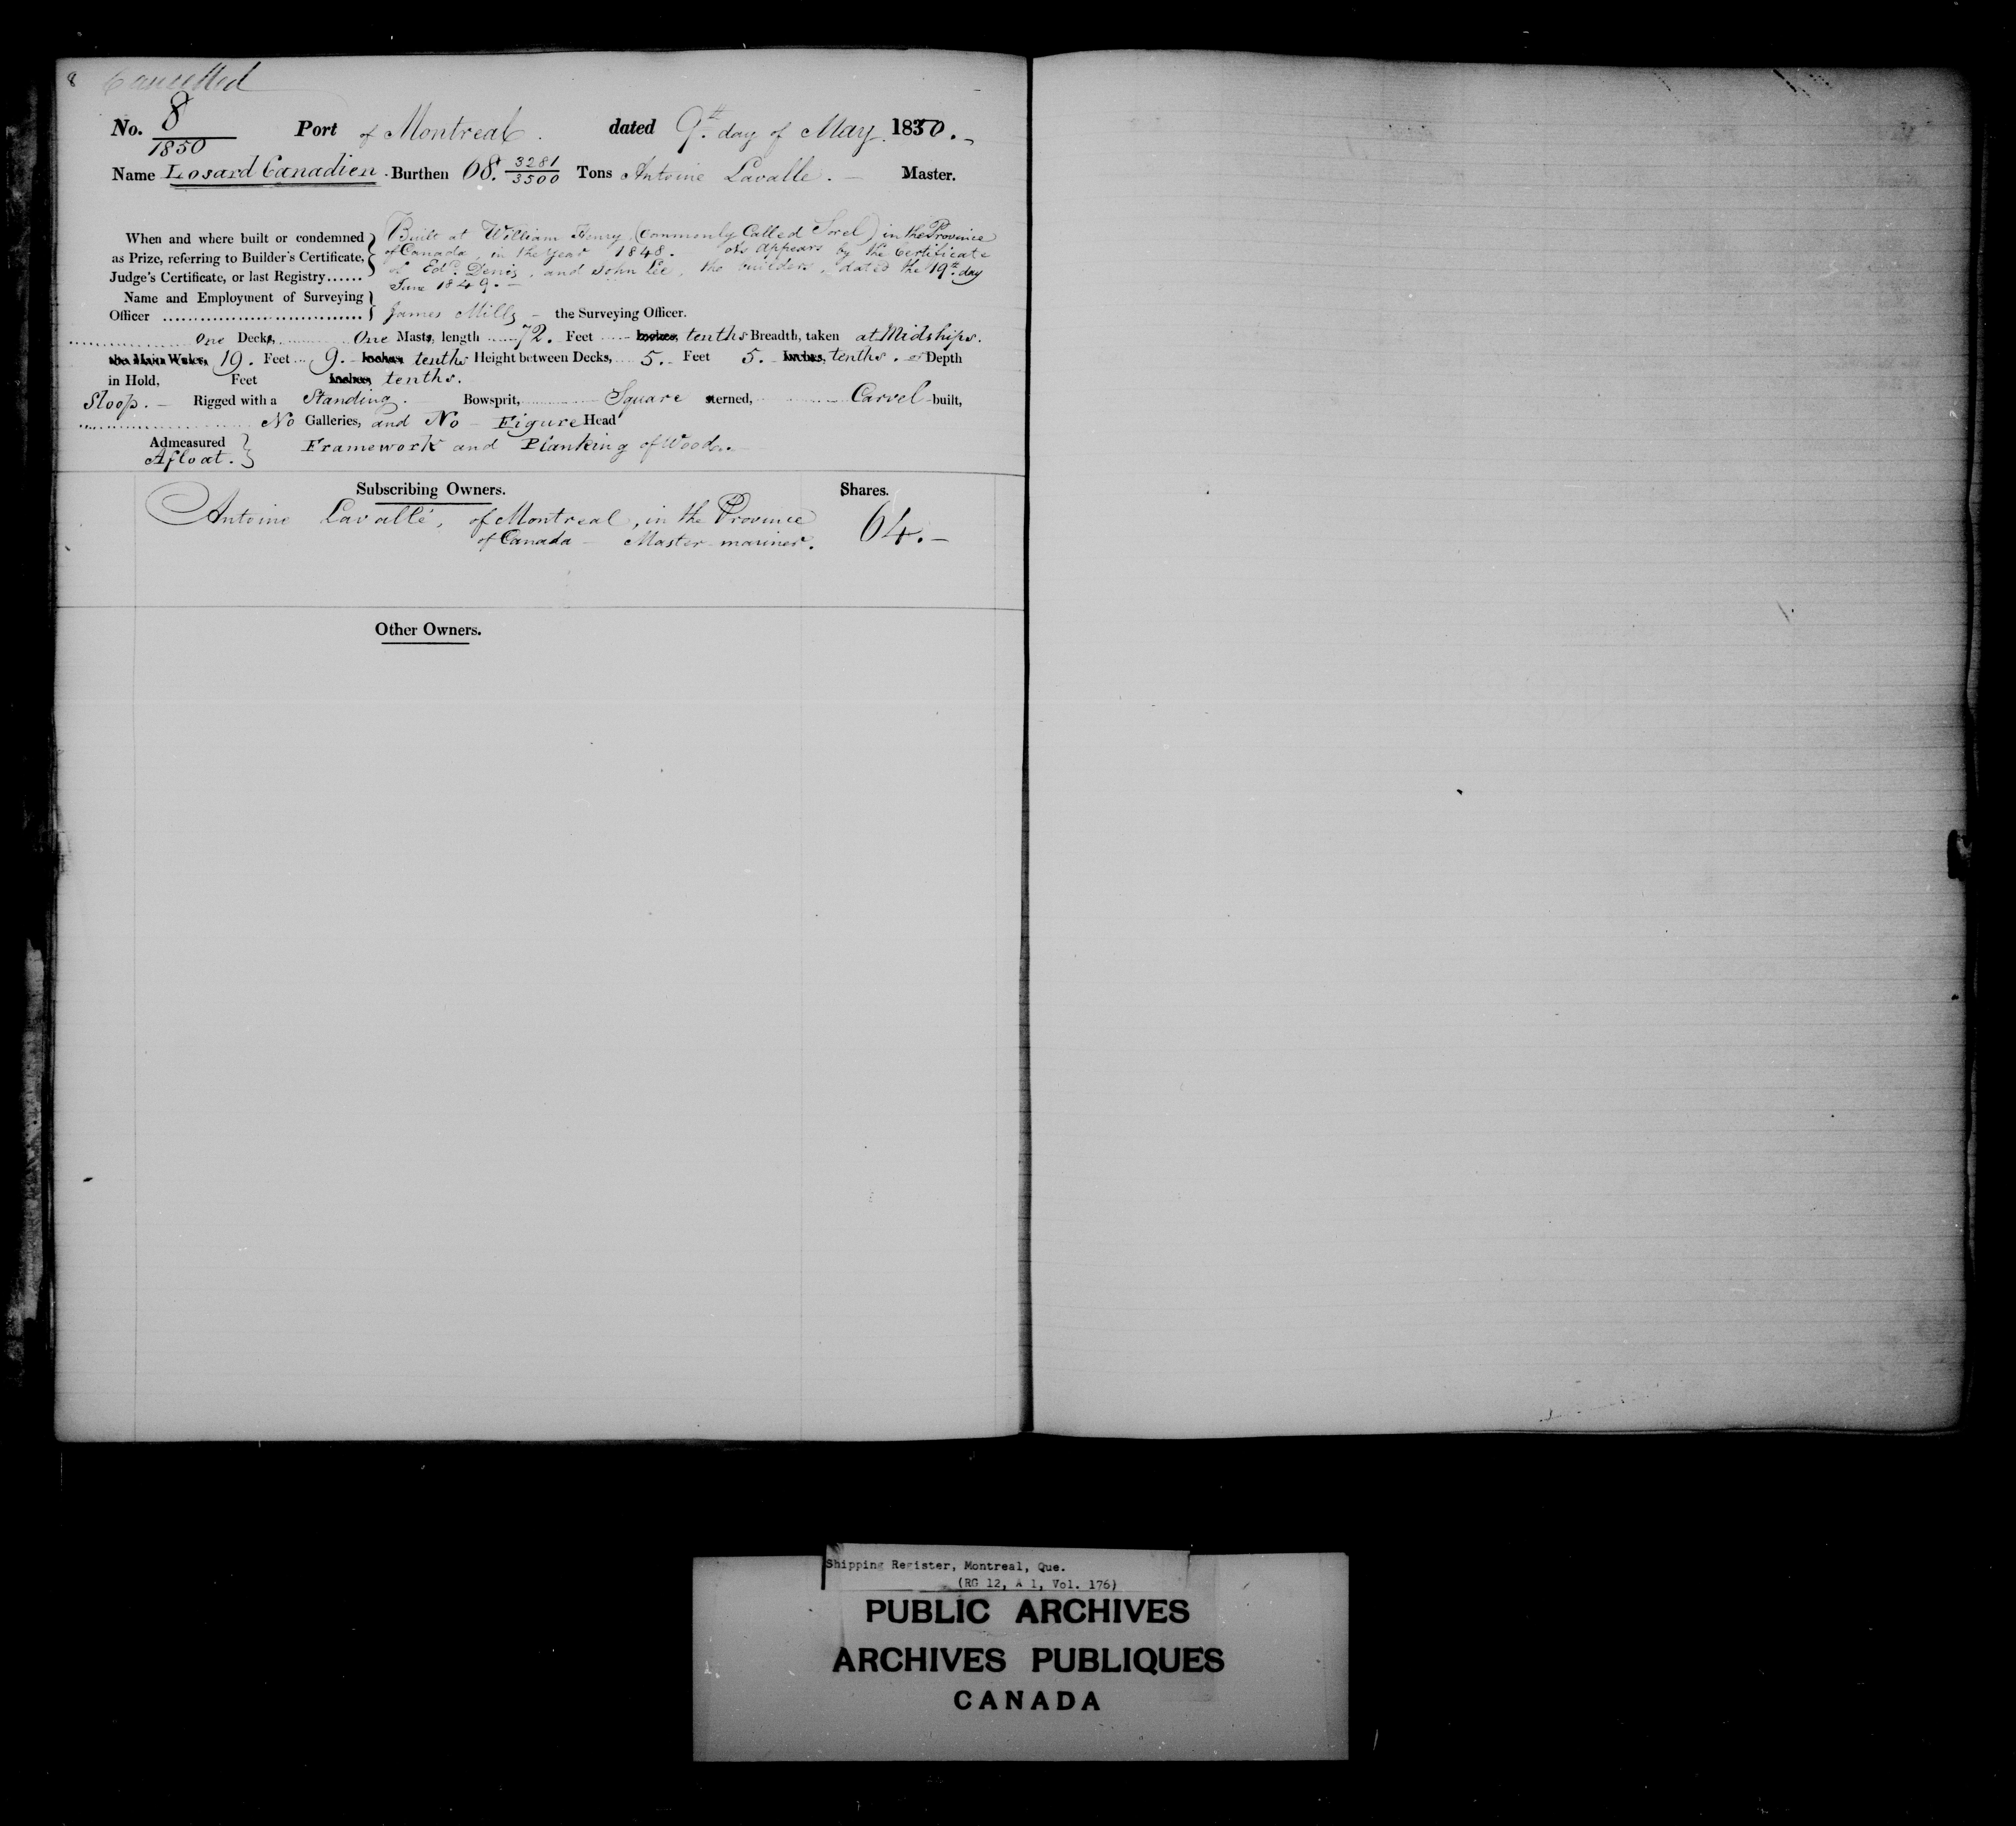 8 Cancelled
No. 8/1850 Port of Montreal. dated 9th. day of May. 1850.
Name Losard Canadien. Burthen 68. 3281/3500 Tons Antoine Lavalle. Master.
When and where built or condemned Built at William Henry, (Commonly Called Sorel) in the Province
as Prize, referring to Builder's Certificate, of Canada, in the year 1848. As appears by the Certificate
Judge's Certificate, or last Registry...... of Edd. Denis, and John Lee, the builders, dated the 19th. day
June 1849.
Name and Employment of Surveying
Officer James Mills the Surveying Officer.
One Decks, One Masts, length 72. Feet - Inches, tenths Breadth, taken at Midships.
the Main Wales, 19. Feet 9. Inches tenths Height between Decks, 5. Feet 5. Inches, tenths. or Depth
in Hold, Feet Inches, tenths.
Sloop. Rigged with a Standing. Bowsprit, Square sterned, Carvel-built,
No Galleries, and No Figure Head
Admeasured
Afloat. Framework and Planking of Wood.
Subscribing Owners. Shares.
Antoine Lavallé, of Montreal, in the Province
of Canada - Master mariner. 64.
Other Owners.
Shipping Register, Montreal, Que.
(RG 12, A 1, Vol. 176)
PUBLIC ARCHIVES
ARCHIVES PUBLIQUES
CANADA